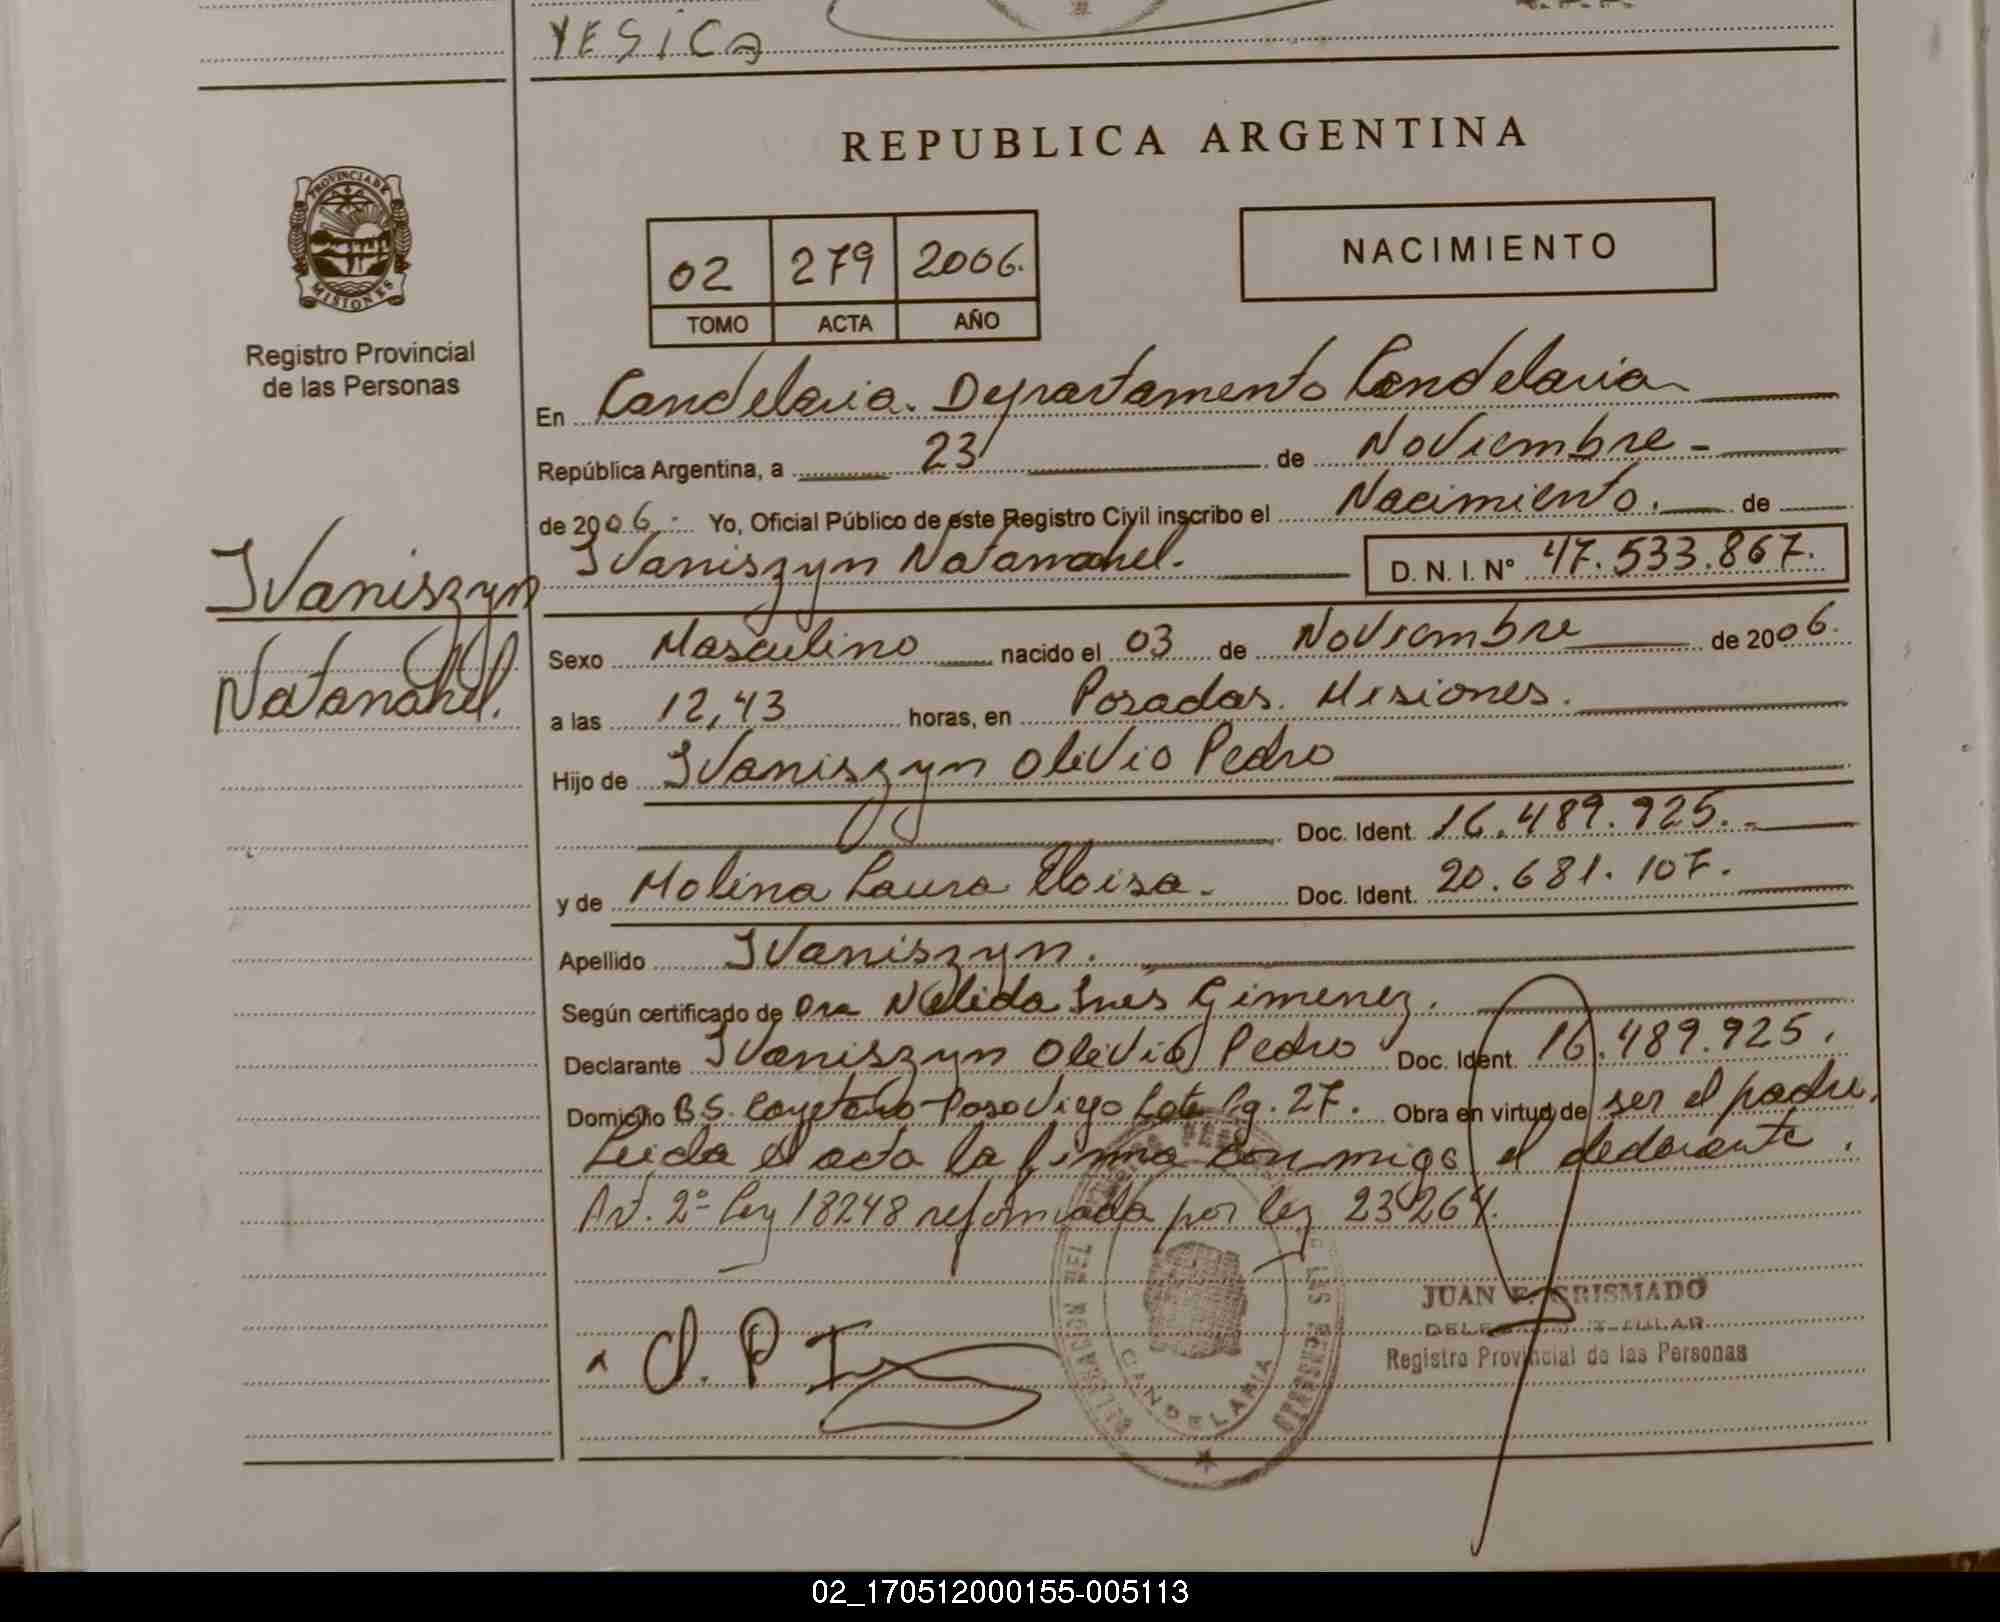 YESICA
REPUBLICA ARGENTINA
PROVINCIA DE
MISIONES
Registro Provincial
de las Personas
02 279 2006.
TOMO ACTA AÑO
NACIMIENTO
En Candelaria. Departamento Candelaria
República Argentina, a 23 de Noviembre -
de 2006.- Yo, Oficial Público de este Registro Civil inscribo el Nacimiento. de
Ivaniszyn Natanahel. D. N. I. Nº 47.533.867.
Ivaniszyn
Natanahel.
Sexo Masculino nacido el 03 de Noviembre de 2006.
a las 12,43 horas, en Posadas. Misiones.
Hijo de Ivaniszyn Olivio Pedro
Doc. Ident. 16.489.925.-
y de Molina Laura Eloisa. Doc. Ident. 20.681.107.
Apellido Ivaniszyn.
Según certificado de Dra Nelida Ines Gimenez.
Declarante Ivaniszyn Olivio Pedro Doc. Ident. 16.489.925.
Domicilio B S. Cayetano Poso Viejo Lote 27. Obra en virtud de ser el padre.
Leida el acta la firma conmigo el declarante.
Art. 2º Ley 18248 reformada por ley 23264.
O. P I
JUAN F. CRISMADO
DELEGADO TITULAR
Registro Provincial de las Personas
CANDELARIA
02_170512000155-005113